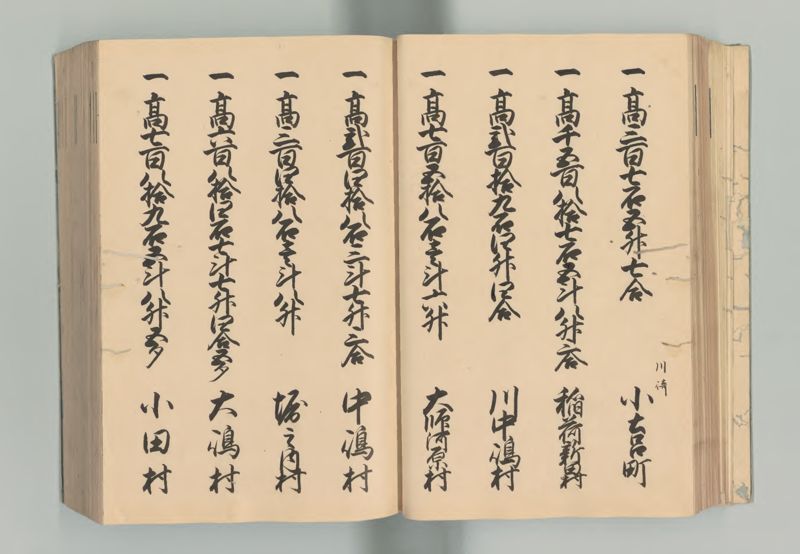 一高三百七石五升七合 川崎 小土呂町
一高千五百八拾七石五斗八升六合 稲荷新田村
一高弐百拾九石四升四合 川中嶋村
一高七百五拾八石壱斗六升 大師河原村
一高弐百四拾八石三斗七升六合 中嶋村
一高三百四拾八石壱斗八升 堀之内村
一高六百八拾四石七斗七升四合五夕 大嶋村
一高七百八拾九石五斗八升五夕 小田村